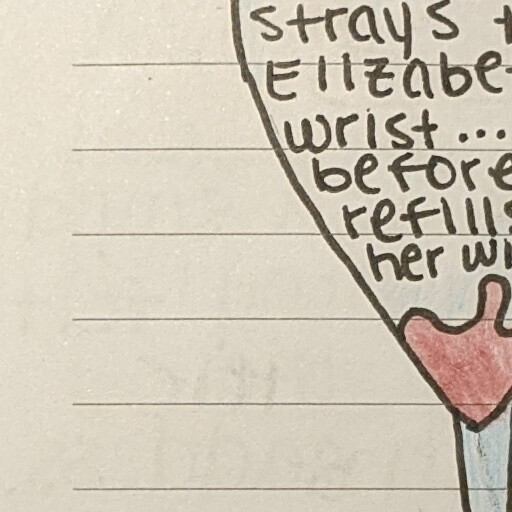 strays
Elizabe
wrist...
before
refills
her wi